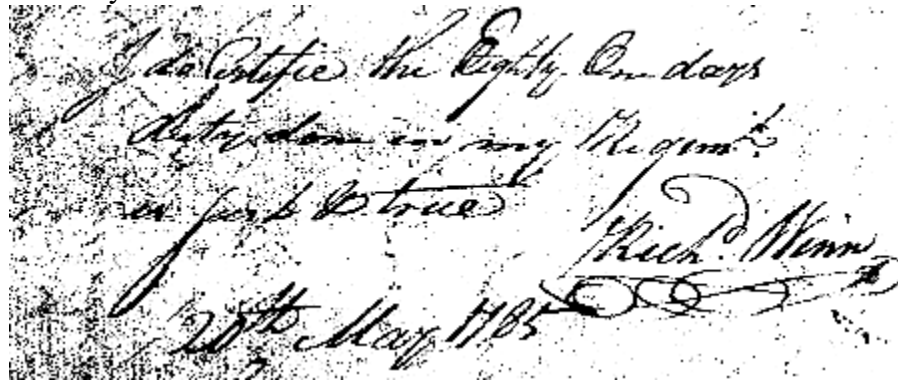 I do Certifie the Eighty One days
duty done in my Regimt.
is just & true
Richd. Winn
May 1785